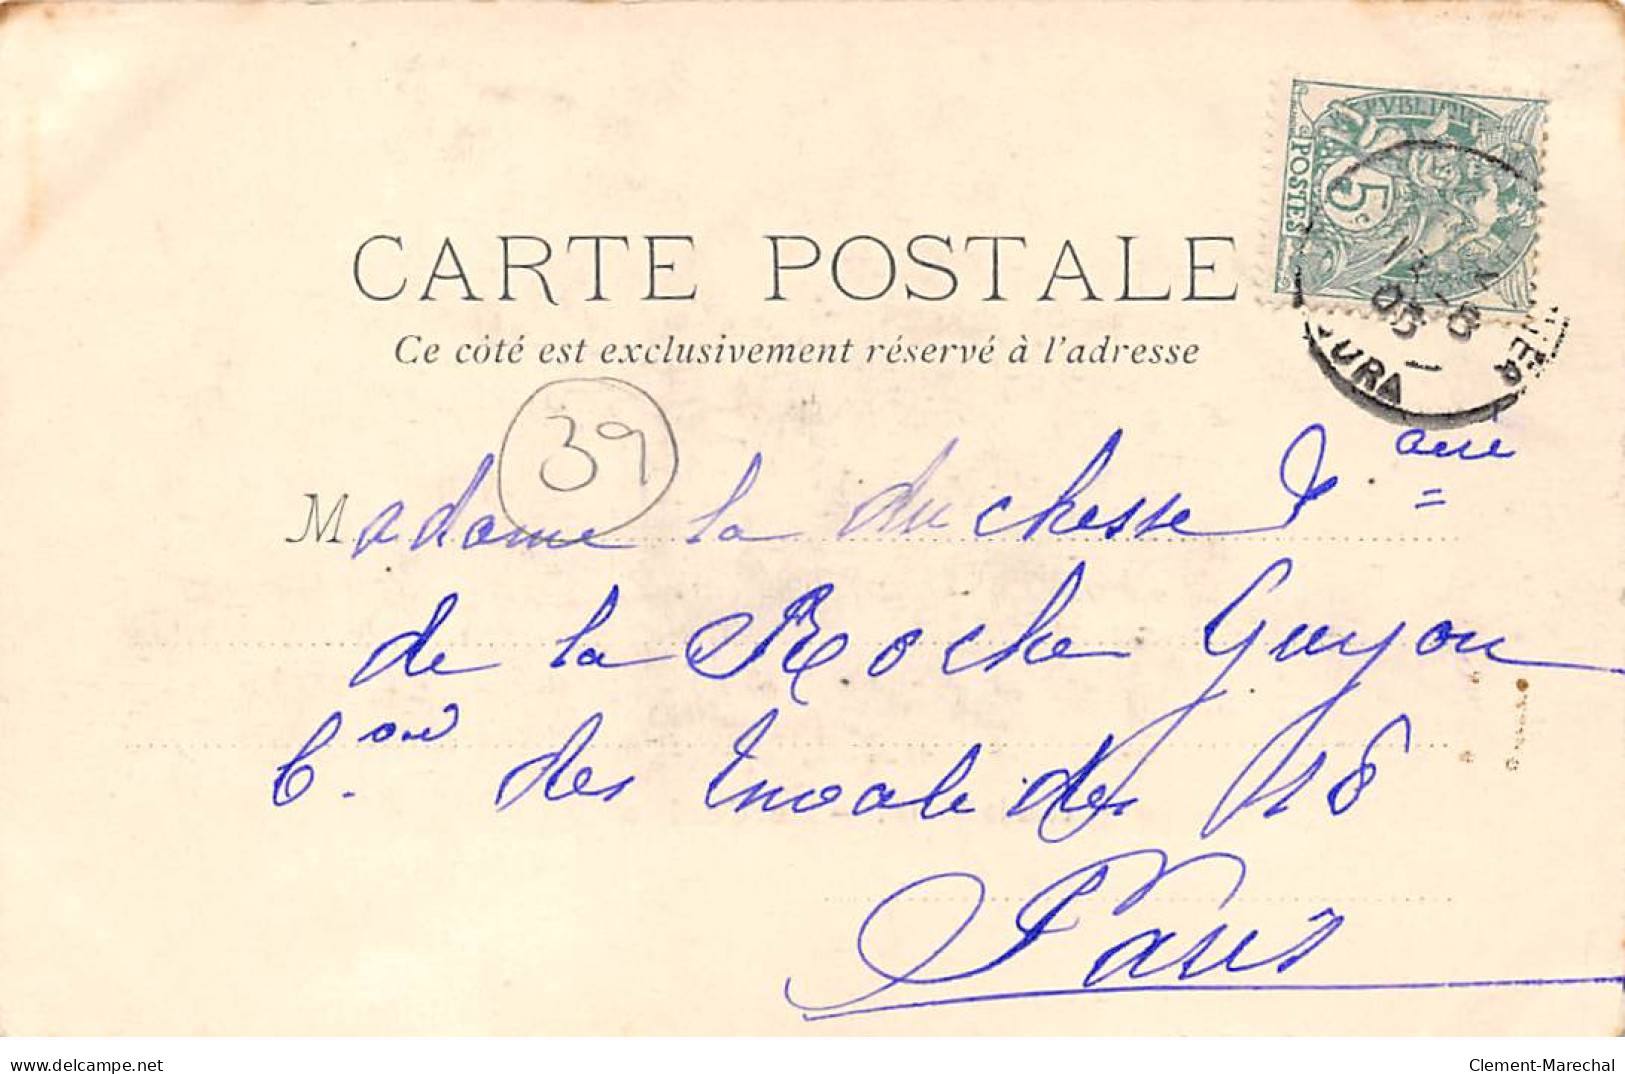 RÉPUBLIQUE
POSTES
5c
JURA
CARTE POSTALE
Ce côté est exclusivement réservé à l'adresse
39
Madame la duchesse Dere
de la Roche Guyon
Bard des Invalides 18
Paris
www.delcampe.net
Clement-Marechal